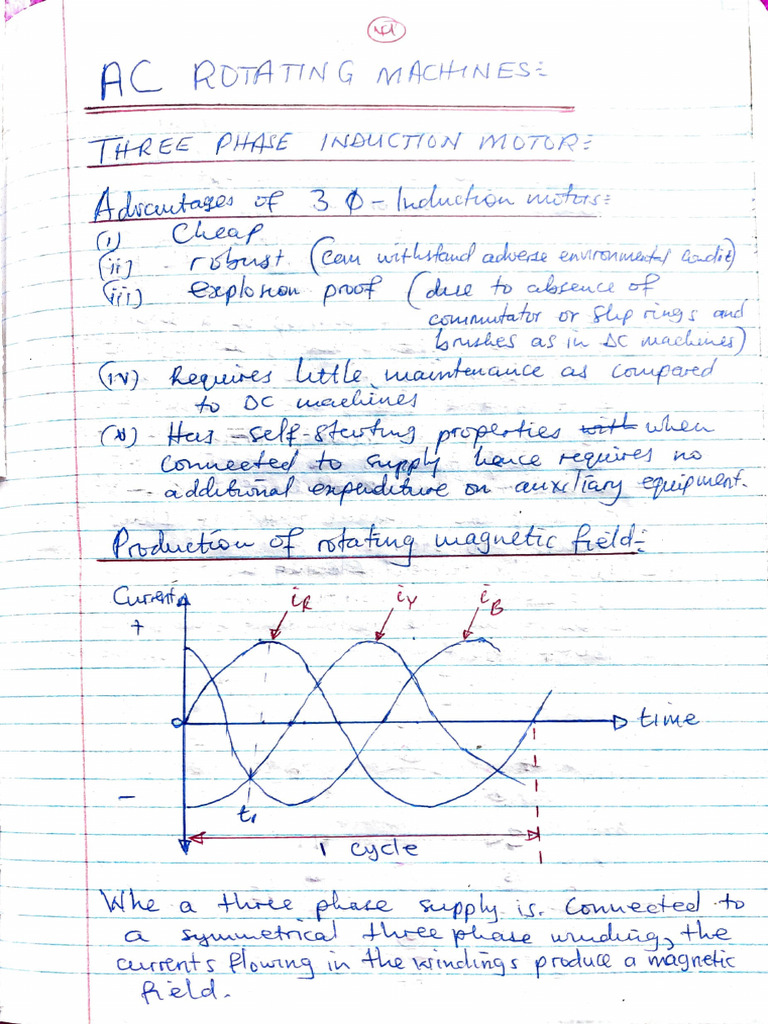 AC ROTATING MACHINES:
THREE PHASE INDUCTION MOTOR:
Advantages of 3 Ø - Induction motors:
(i) Cheap
(ii) robust (can withstand adverse environmental condit)
(iii) explosion proof (due to absence of
commutator or slip rings and
brushes as in DC machines)
(iv) Requires little maintenance as compared
to DC machines
(v) Has self-starting properties with when
connected to supply hence requires no
additional expenditure on auxiliary equipment.
Production of rotating magnetic field:
Current
+
iR iY iB
o
time
-
t1
1 cycle
Whe a three phase supply is. Connected to
a symmetrical three phase winding, the
currents flowing in the windings produce a magnetic
field.